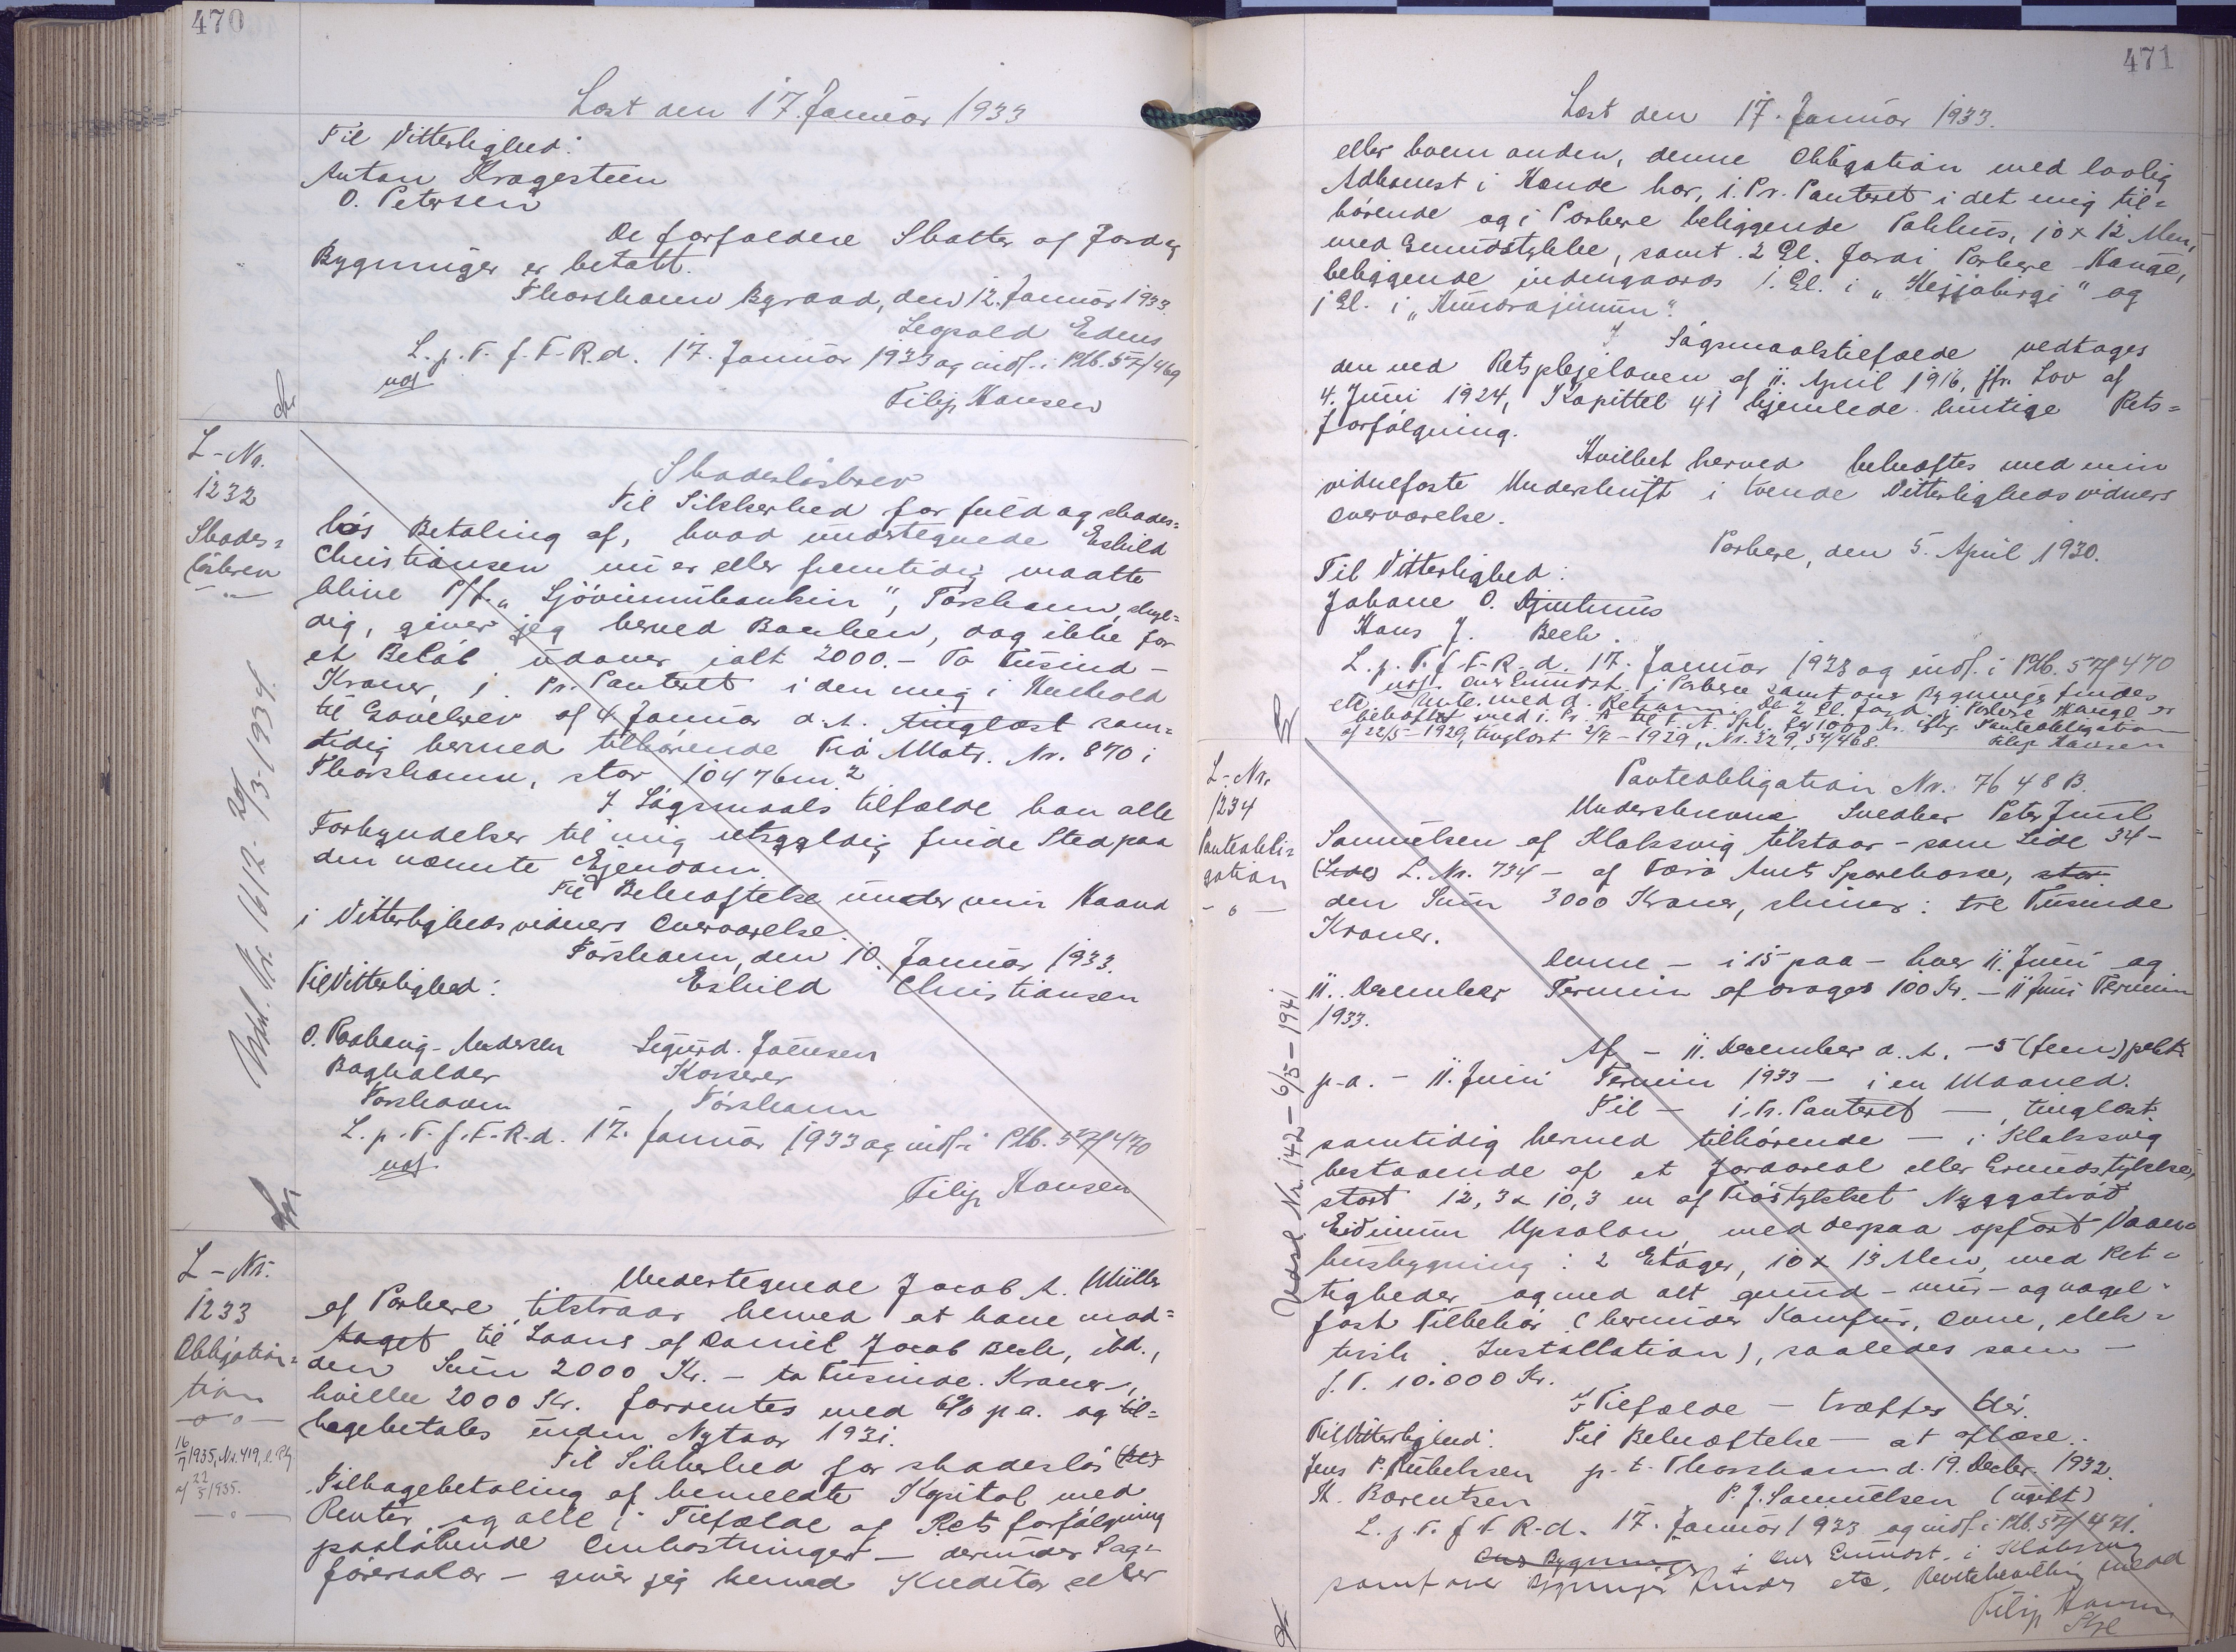 470
Læst den 17. Januar 1933
Til Vitterlighed:
Anton Kragesteen
O. Petersen
De forfaldene Skatter af Jord og
Bygninger er betalt.
Thorshavn Byraad, den 12. Januar 1933.
Leopold
L. p. T. f. F. R. d. 17. Januar 1933 og indf. i Ptb. 57/469
Filip Hansen
L-Nr.
1232
Skades=
løsbrev
Vedl. Nr. 1612- 24/3-1934.
Skadesløsbrev
Til Sikkerhed for fuld og skades=
løs Betaling af, hvad undertegnede Eskild
Christiansen nu er eller fremtidig maatte
blive P/f. "Sjóvinnubankin", Tórshavn, skyl=
dig, giver jeg herved Banken, dog ikke for
et Beløb udover ialt 2000.- To Tusind -
Kroner, 1. Pr. Panteret i den mig i Henhold
til Gavebrev af 4 Januar d. A. tinglæst sam=
tidig hermed tilhørende Trø Matr. Nr. 870 i
Thorshavn, stor 10476m.²
I Søgsmaals tilfælde kan alle
Forkyndelser til mig retsgyldig finde Sted paa
den nævnte Ejendom.
Til Bekræftelse under min Haand
i Vitterlighedsvidners Overværelse.
Tórshavn, den 10. Januar 1933.
Til Vitterlighed: Eskild Christiansen
O. Andersen Sigurd Joensen
Bogholder Kasserer
Tórshavn Tórshavn
L. p. T. f. F. R. d. 17. Januar 1933 og indf. i Ptb. 57/470
Filip Hansen
L-Nr.
1233
Obligation=
tion
16/7 1935, Nr. 419,
af 22/5 1935.
Undertegnede Jacob A. Müller
af Porkere, tilstaar herved at have mod=
taget til Laans af Daniel Jacob Bech, ibd.,
den Sum 2000 Kr. - to Tusinde Kroner -,
hvilke 2000 Kr. forrentes med 6% p.a. og til=
bagebetales inden Nytaar 1931.
Til Sikkerhed for skadesløs (Be)
Tilbagebetaling af bemeldte Kapital med
Renter og alle i Tilfælde af Rets forfølgning
paaløbende Omkostninger - derunder Sag=
førersalær - giver jeg herved Kreditor eller
471
Læst den 17. Januar 1933.
eller hvem anden, denne Obligation med lovlig
Adkomst i Hænde har, 1. Pr. Panteret i det mig til=
hørende og i Porkere beliggende Pakhus, 10 x 12 Alen,
med Grundstykke, samt 2 Gl. Jord i Porkere Hauge,
beliggende indengaards 1 Gl. i " " og
1 Gl. i " ".
I Søgsmaalstilfælde vedtages
den ved Retsplejeloven af 11. April 1916, jfr. Lov af
4. Juni 1924, Kapittel 41 hjemlede hurtige Rets=
forfølgning.
Hvilket herved bekræftes med min
vidnefaste Underskrift i tvende Vitterlighedsvidners
Overværelse.
Porkere, den 5. April 1930.
Til Vitterlighed:
Johane O. Djurhuus
Hans J. Bech.
L. p. T. f. F. R. d. 17. Januar 1933 og indf. i Ptb. 57/470
over Grundst. i Porkere samt over Bygninger findes
etc. De 2 Gl. Jord i Porkere Hauge er
behæftet med 1. Pr. til F. A. Spk. for 1000 Kr. iflg. Panteobligation
af 22/5-1929, tinglæst 2/7-1929, Nr. 329, 54/468. Filip Hansen
L-Nr.
1234
Panteobli=
gation
Vedl. Nr. 142-6/5-1941
Panteobligation Nr. 7648 B.
Underskrevne Snedker Peter Juul
Samuelsen af Klaksvig tilstaar - som Side 34-
(Side) L. Nr. 734 - af Færø Amts Sparekasse, stor
den Sum 3000 Kroner, skriver: tre Tusinde
Kroner.
Denne - i 15 paa - hver 11. Juni og
11. December Termin afdrages 100 Kr. - 11 Juni Termin
1933.
Af - 11. December d. A. - 5 (fem) pCt.
p.a. - 11. Juni Termin 1933 - i en Maaned.
Til - 1. Pr. Panteret - tinglæst
samtidig hermed tilhørende - i Klaksvig
bestaaende af et Jordareal eller Grundstykke,
stort 12,3 x 10,3 m af Trøstykket
Upsalon, med derpaa opført Vaane
husbygning: 2 Etager, 10 x 13 Alen, med Ret=
tigheder og med alt grund- mur- og nagel=
fast Tilbehør (herunder Komfur, Ovne, elek=
trisk Installation), saaledes som -
f. T. 10.000 Kr.
I Tilfælde - træffes der.
Til Vitterlighed: Til Bekræftelse - at aflæse.
Jens P. p. t. Thorshavn d. 19. Decbr. 1932.
K. Barentsen P. J. Samuelsen (ugift)
L. p. T. f. F. R. d. 17. Januar 1933 og indf. i Ptb. 57/471.
over Bygninger i over Grundst. i Klaksvig
samt over Bygninger findes etc.
Filip Hansen